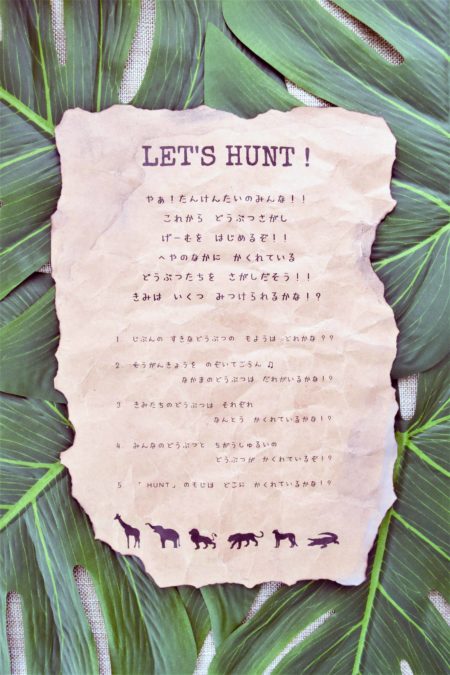 LET'S HUNT!
やぁ!たんけんたいのみんな!!
これから どうぶつさがし
げーむを はじめるぞ!!
へやのなかに かくれている
どうぶつたちを さがしだそう!!
きみは いくつ みつけられるかな!?
1. じぶんの すきなどうぶつの もようは どれかな??
2. そうがんきょうを のぞいてごらん♫
なかまのどうぶつは だれがいるかな!?
3. きみたちのどうぶつは それぞれ
なんとう かくれているかな!?
4. みんなのどうぶつと ちがうしゅるいの
どうぶつが かくれているぞ!?
5. 「HUNT」のもじは どこに かくれているかな!?